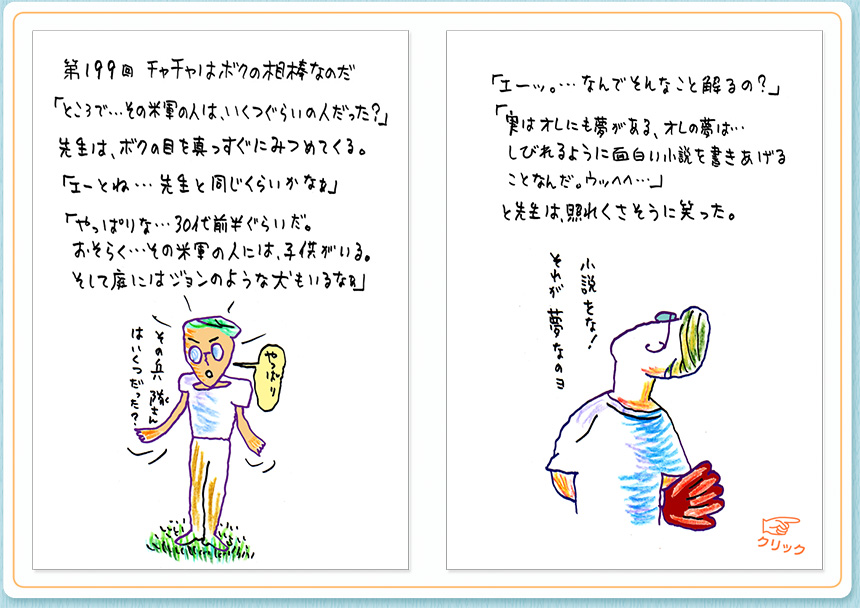 第199回 チャチャはボクの相棒なのだ
「ところで…その米軍の人は、いくつぐらいの人だった？」
先生は、ボクの目を真っすぐにみつめてくる。
「エーとね… 先生と同じくらいかなぁ」
「やっぱりな… 30代前半ぐらいだ。
おそらく…その米軍の人には、子供がいる。
そして庭にはジョンのような犬もいるなぁ」
やっぱり
その兵隊さん
はいくつだった？
「エーッ。… なんでそんなこと解るの？」
「実はオレにも夢がある、オレの夢は…
しびれるように面白い小説を書きあげる
ことなんだ。ウッヘヘ…」
と先生は、照れくさそうに笑った。
小説をな！
それが夢なのヨ
クリック